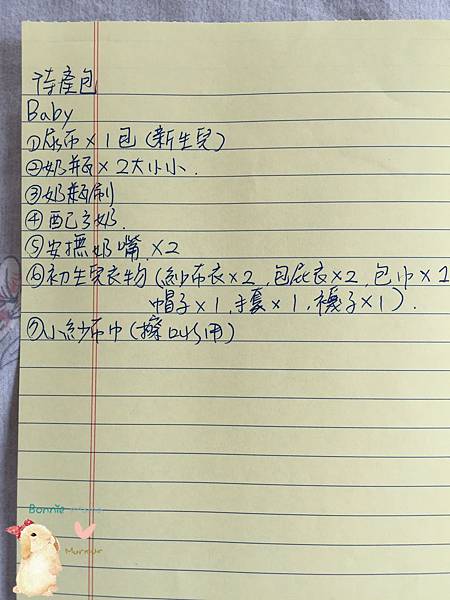 待產包
Baby
①尿布×1包(新生兒)
②奶瓶×2大小小.
③奶瓶刷
④配方奶.
⑤安撫奶嘴.×2
⑥初生兒衣物(紗布衣×2,包屁衣×2,包巾×1
帽子×1,手套×1,襪子×1).
⑦小紗布巾(擦口水用)
Bonnie
Murmur